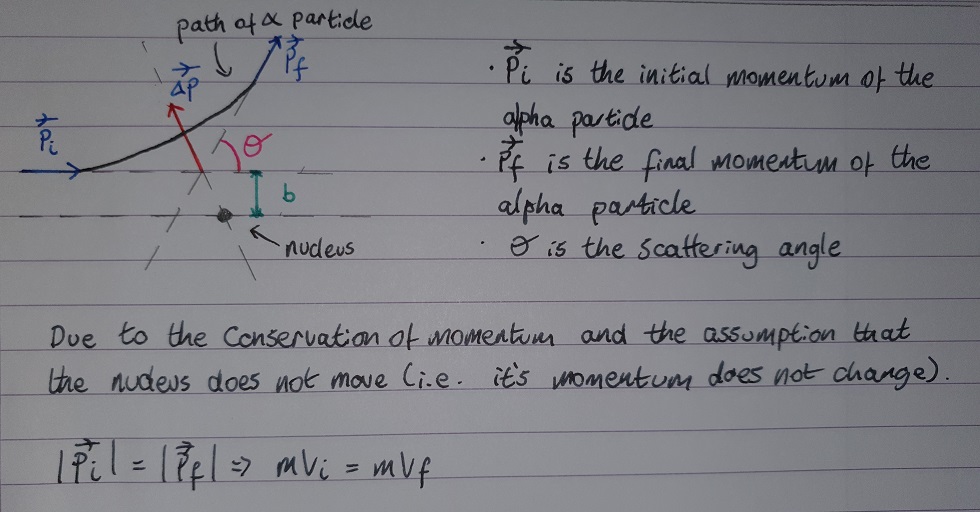 path of α particle
P⃗f
ΔP⃗
P⃗i
θ
b
nucleus
· P⃗i is the initial momentum of the
alpha particle
· P⃗f is the final momentum of the
alpha particle
· θ is the scattering angle
Due to the Conservation of momentum and the assumption that
the nucleus does not move (i.e. it's momentum does not change).
|P⃗i| = |P⃗f| => mVi = mVf